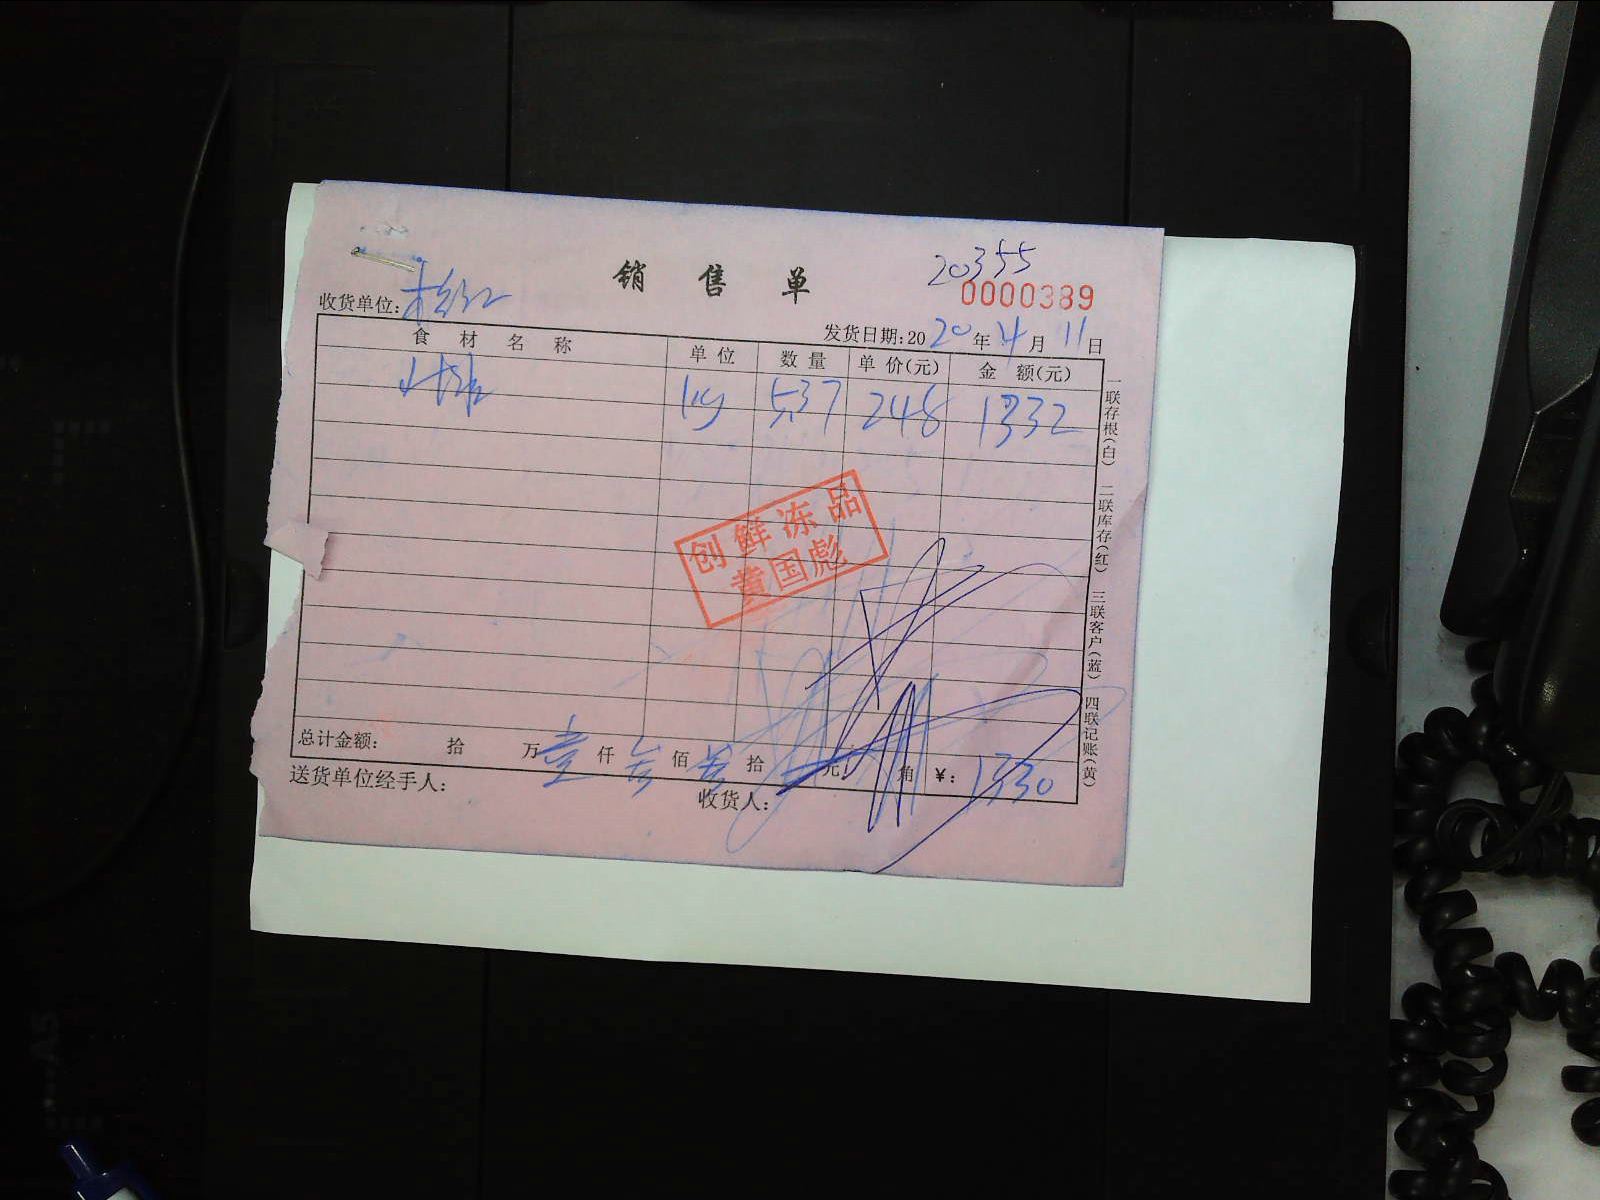 20355
销售单
0000389
收货单位:
发货日期:2020年4月11日
食材名称 单位 数量 单价(元) 金额(元)
kg 5.37 248 1332
创鲜冻品
黄国彪
总计金额: 拾 万 壹 仟 叁 佰 叁 拾 元 角 ¥: 1330
送货单位经手人: 收货人:
一联存根(白) 二联库存(红) 三联客户(蓝) 四联记账(黄)